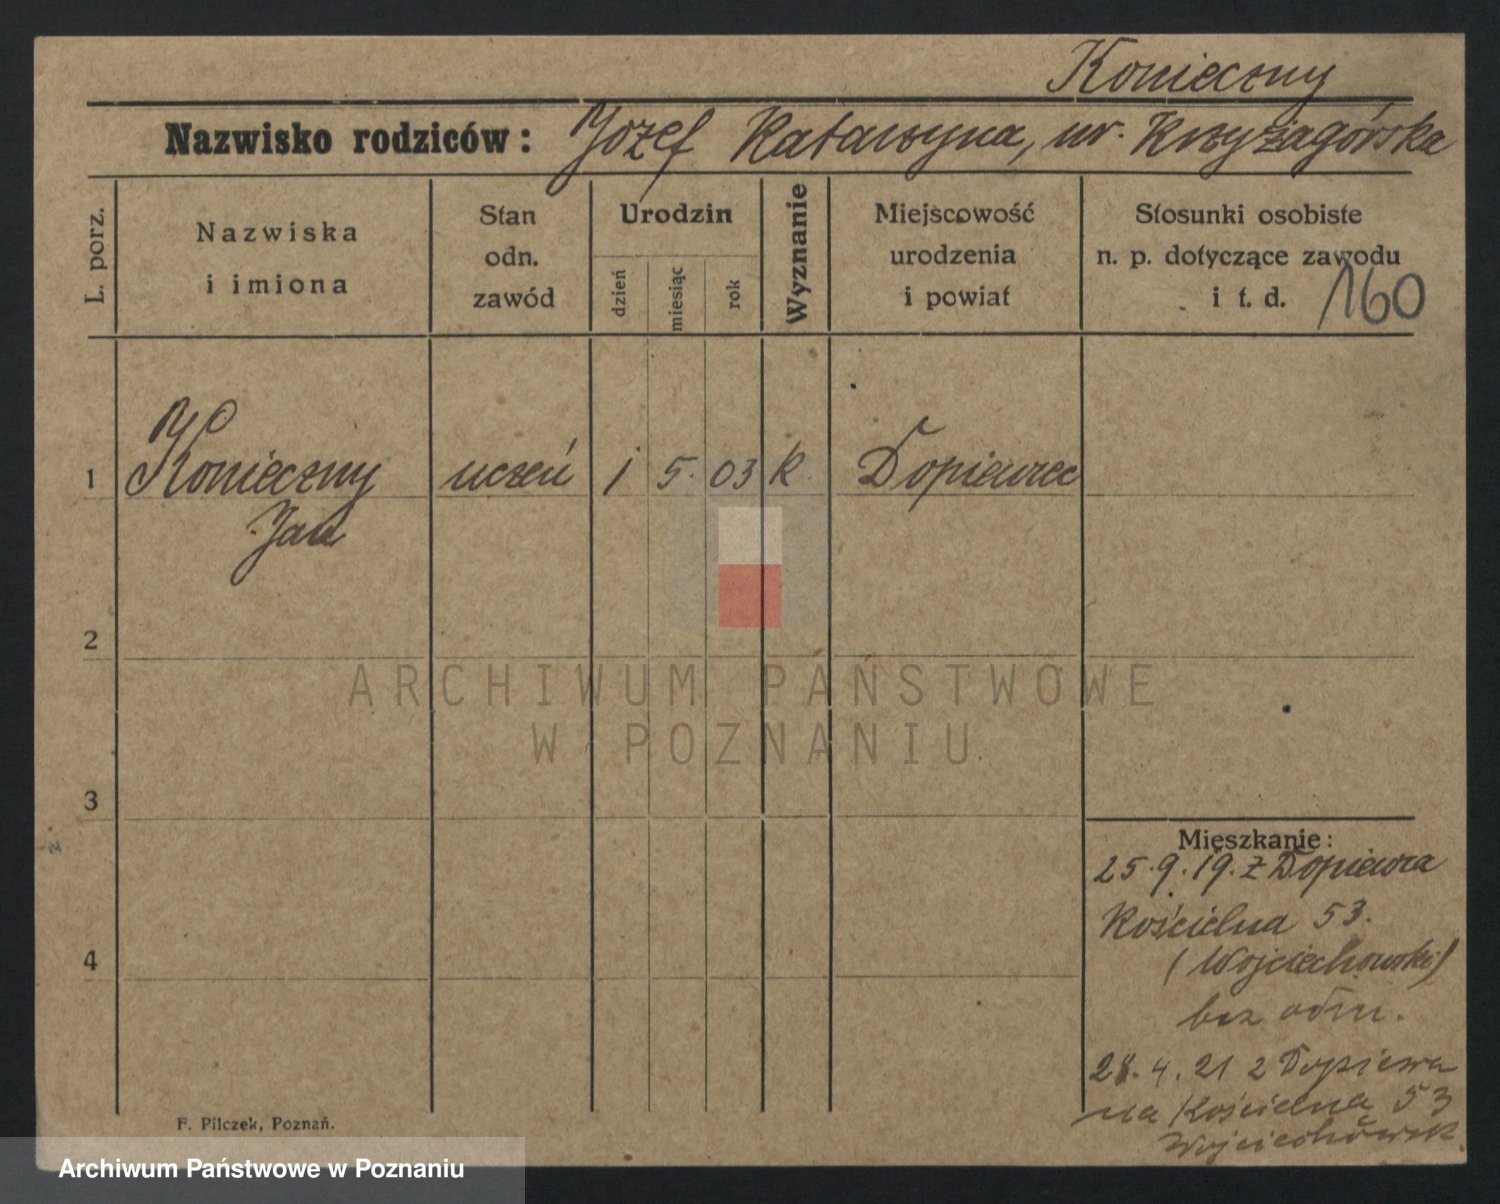 Konieczny
Nazwisko rodziców: Józef Katarzyna, ur. Krzyżagórska
L. porz.
Nazwiska
i imiona
Stan
odn.
zawód
Urodzin
dzień
miesiąc
rok
Wyznanie
Miejscowość
urodzenia
i powiat
Stosunki osobiste
n. p. dotyczące zawodu
i t. d. 160
1 Konieczny uczeń 1 5. 03 k. Dopiewiec
Jan
2
3
4
Mieszkanie:
25.9.19. z Dopiewca
Kościelna 53.
(Wojciechowski)
bez odm.
28.4.21 z Dopiewa
na Kościelna 53
Wojciechowsk
F. Pilczek, Poznań.
ARCHIWUM PAŃSTWOWE
W POZNANIU
Archiwum Państwowe w Poznaniu